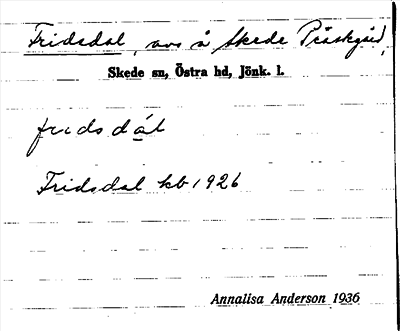 Fridsdal, avs å Skede Prästgård,
Skede sn, Östra hd, Jönk. l.
fridsdál
Fridsdal kb 1926
Annalisa Anderson 1936